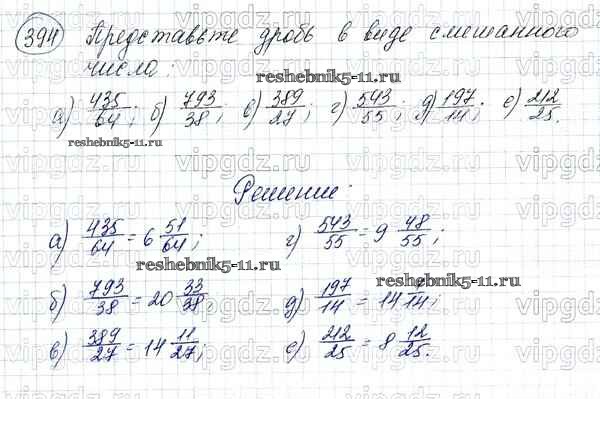 394 Представьте дробь в виде смешанного
числа:
reshebnik5-11.ru
а) 435/64; б) 793/38; в) 389/27; г) 543/55; д) 197/14; е) 212/25.
reshebnik5-11.ru
Решение:
а) 435/64 = 6 51/64; г) 543/55 = 9 48/55;
reshebnik5-11.ru
б) 793/38 = 20 33/38; д) 197/14 = 14 /14;
в) 389/27 = 14 11/27; е) 212/25 = 8 12/25.
reshebnik5-11.ru
vipgdz.ru